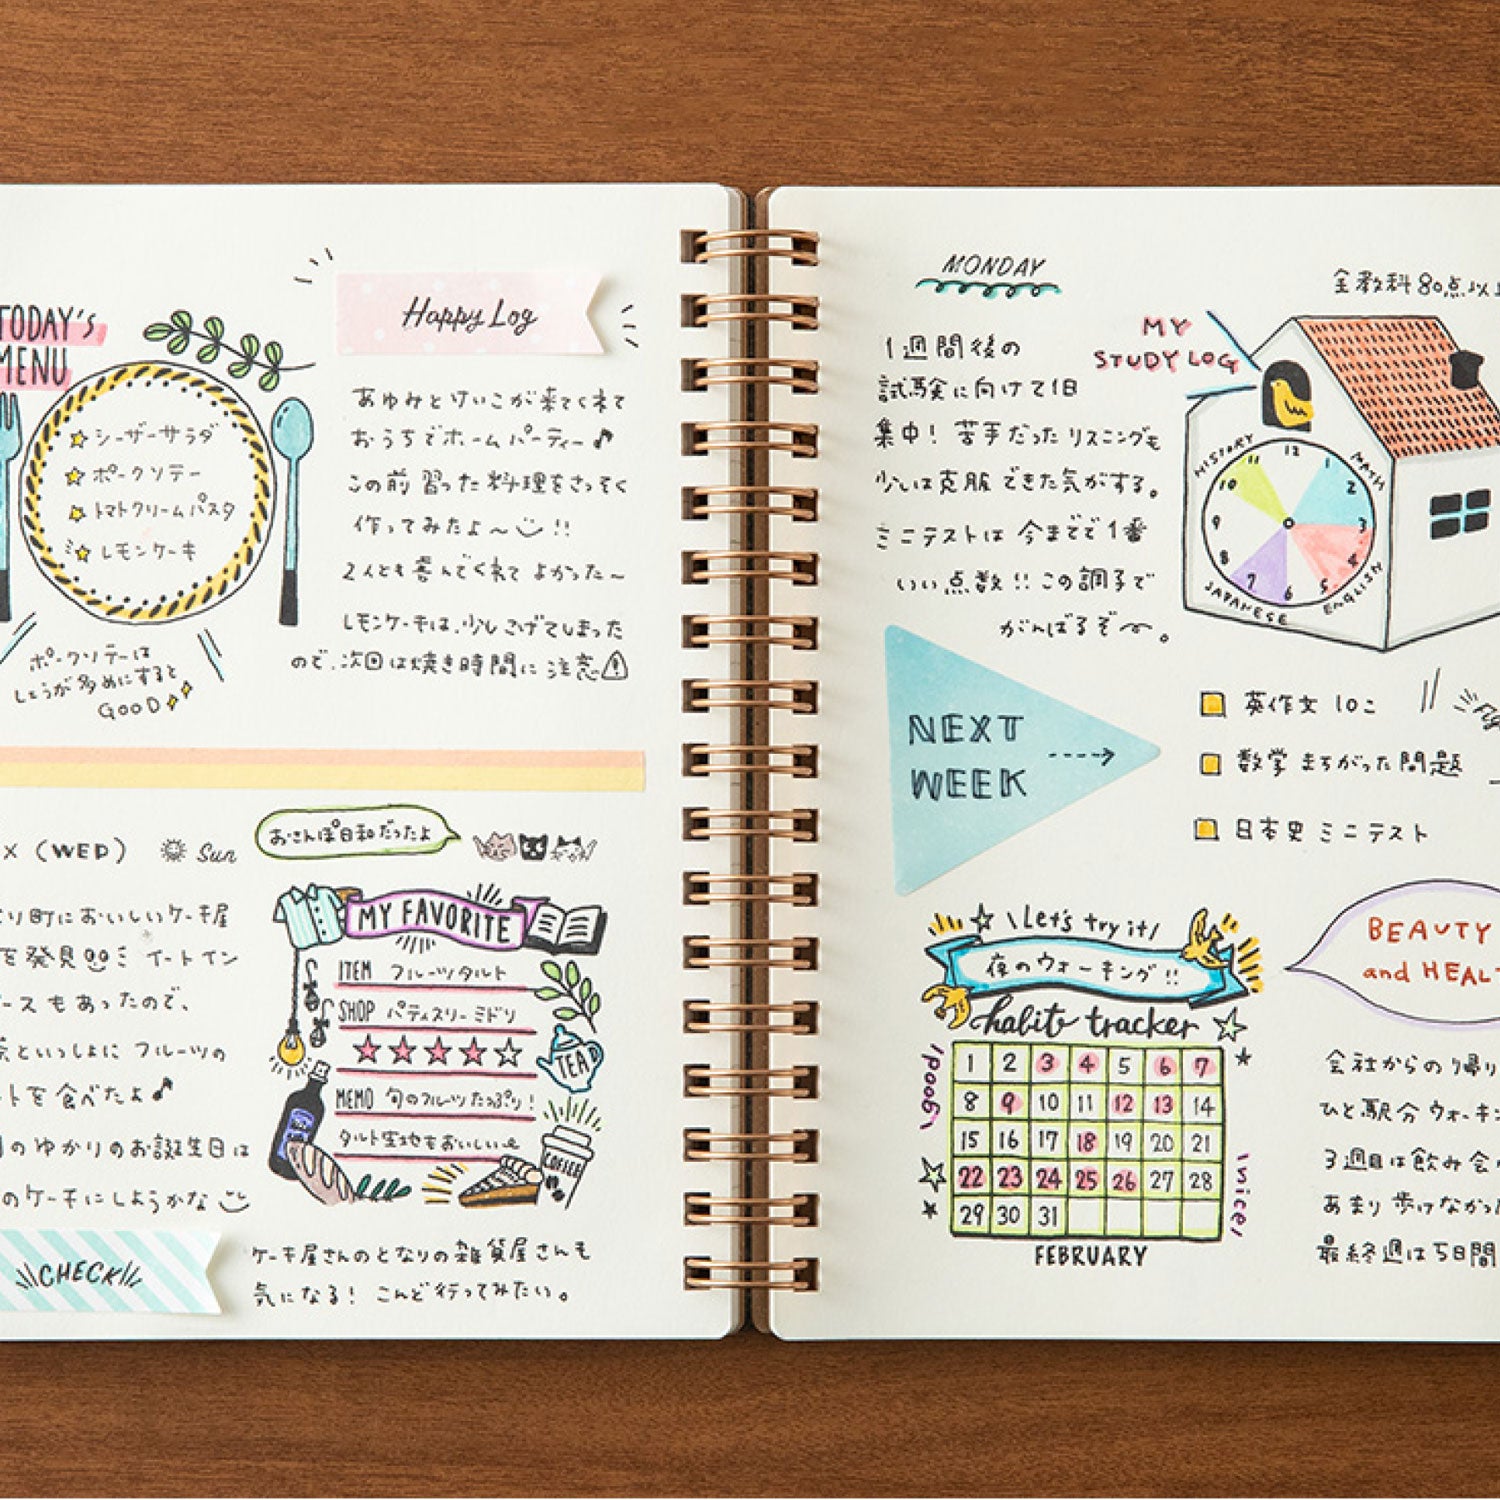 TODAY's
MENU
シーザーサラダ
ポークソテー
トマトクリームパスタ
レモンケーキ
ポークソテーは
しょうが多めにすると
GOOD
Happy Log
あゆみとけいこが来てくれて
おうちでホームパーティー♪
この前習った料理をさっそく
作ってみたよ〜!!
2人とも喜んでくれてよかった〜
レモンケーキは、少しこげてしまった
ので、次回は焼き時間に注意
× (WED) Sun
おさんぽ日和だったよ
り町においしいケーキ屋
を発見 イートイン
ースもあったので、
茶といっしょにフルーツの
ルトを食べたよ♪
のゆかりのお誕生日は
のケーキにしようかな
MY FAVORITE
ITEM フルーツタルト
SHOP パティスリーミドリ
★★★★☆
TEA
MEMO 旬のフルーツたっぷり!
タルト生地もおいしい
COFFEE
CHECK!
ケーキ屋さんのとなりの雑貨屋さんも
気になる! こんど行ってみたい。
MONDAY
1週間後の
試験に向けて1日
集中! 苦手だったリスニングも
少しは克服できた気がする。
ミニテストは今までで1番
いい点数!! この調子で
がんばるぞ〜。
全教科80点以上
MY
STUDY LOG
HISTORY
MATH
ENGLISH
JAPANESE
12
1
2
3
4
5
6
7
8
9
10
11
NEXT
WEEK
英作文 10コ
数学 まちがった問題
日本史 ミニテスト
Let's try it!
夜のウォーキング!!
habit tracker
good!
1 2 3 4 5 6 7
8 9 10 11 12 13 14
15 16 17 18 19 20 21
22 23 24 25 26 27 28
29 30 31
nice!
FEBRUARY
BEAUTY
and HEALT
会社からの帰り
ひと駅分ウォーキ
3週目は飲み会
あまり歩けなかっ
最終週は5日間